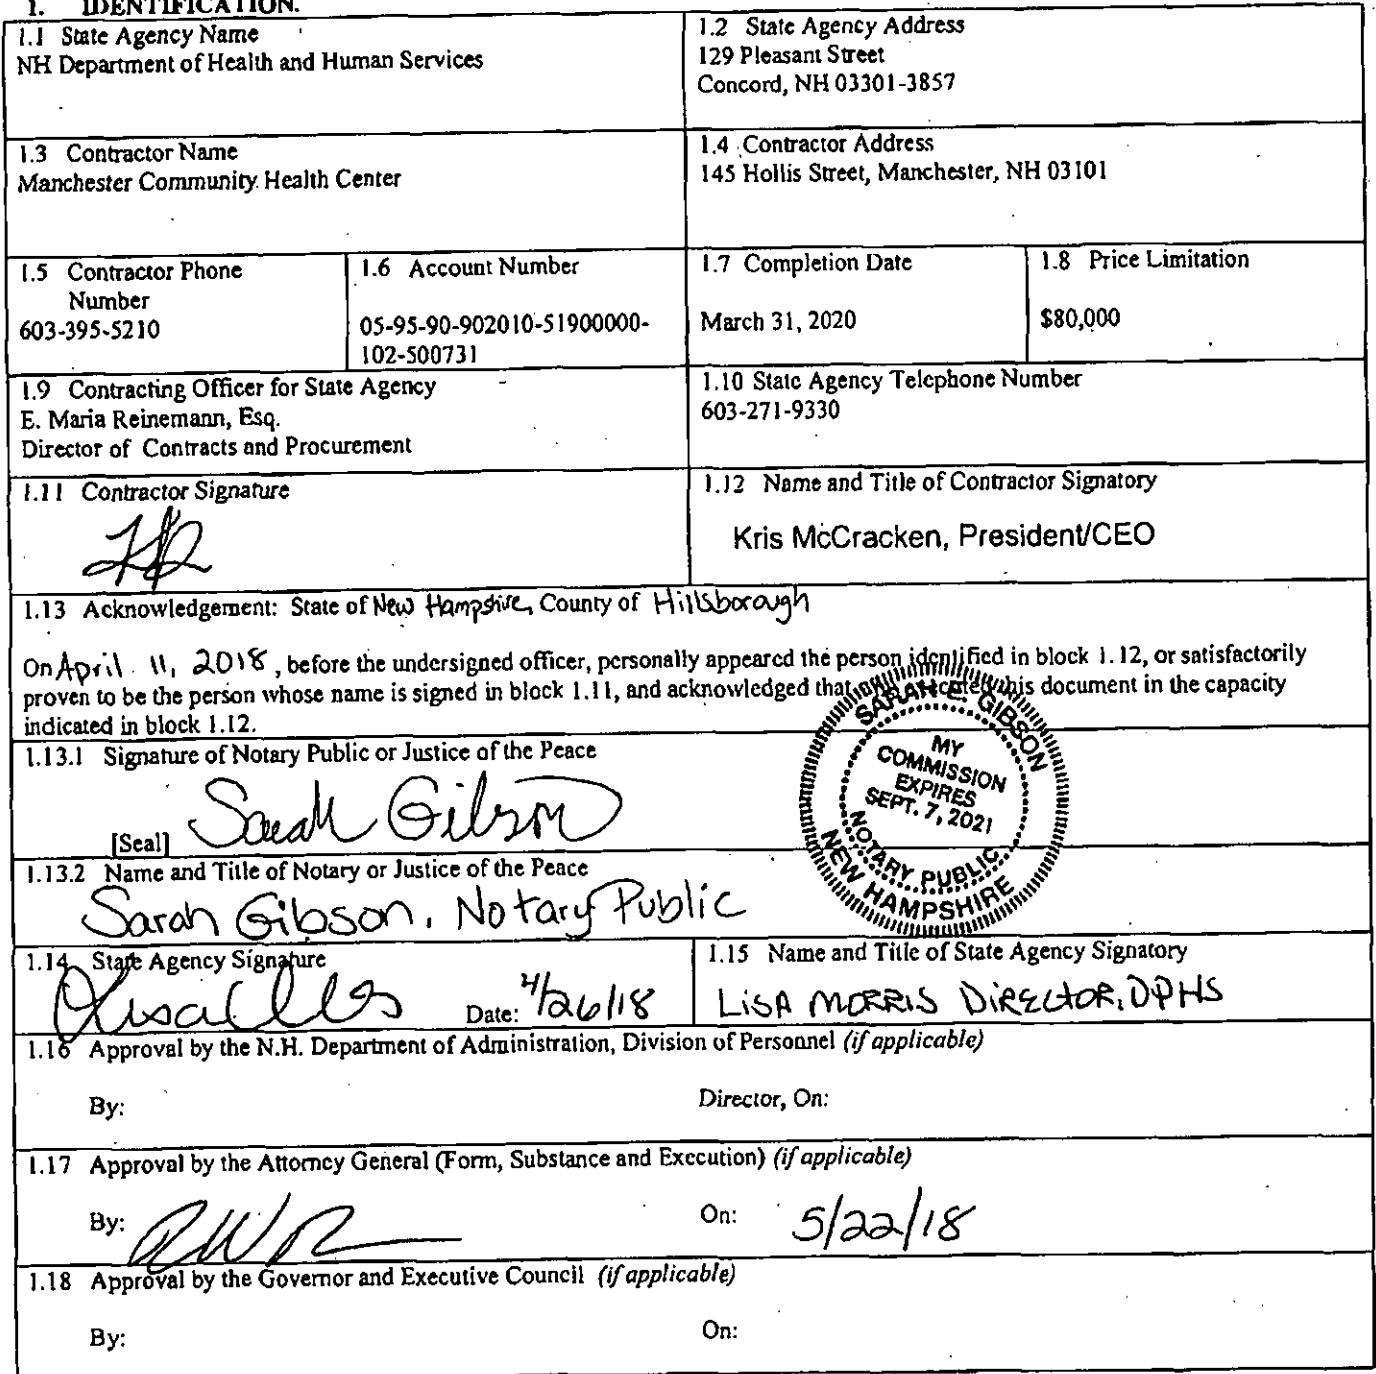 1. IDENTIFICATION.
1.1 State Agency Name
NH Department of Health and Human Services
1.2 State Agency Address
129 Pleasant Street
Concord, NH 03301-3857
1.3 Contractor Name
Manchester Community Health Center
1.4 Contractor Address
145 Hollis Street, Manchester, NH 03101
1.5 Contractor Phone
Number
603-395-5210
1.6 Account Number
05-95-90-902010-51900000-
102-500731
1.7 Completion Date
March 31, 2020
1.8 Price Limitation
$80,000
1.9 Contracting Officer for State Agency
E. Maria Reinemann, Esq.
Director of Contracts and Procurement
1.10 State Agency Telephone Number
603-271-9330
1.11 Contractor Signature
1.12 Name and Title of Contractor Signatory
Kris McCracken, President/CEO
1.13 Acknowledgement: State of New Hampshire, County of Hillsborough
On April 11, 2018, before the undersigned officer, personally appeared the person identified in block 1.12, or satisfactorily
proven to be the person whose name is signed in block 1.11, and acknowledged that this document in the capacity
indicated in block 1.12.
1.13.1 Signature of Notary Public or Justice of the Peace
[Seal] Sarah Gibson
SARAH E. GIBSON
MY
COMMISSION
EXPIRES
SEPT. 7, 2021
NOTARY PUBLIC
NEW HAMPSHIRE
1.13.2 Name and Title of Notary or Justice of the Peace
Sarah Gibson, Notary Public
1.14 State Agency Signature
Date: 4/26/18
1.15 Name and Title of State Agency Signatory
LISA MORRIS DIRECTOR, DPHS
1.16 Approval by the N.H. Department of Administration, Division of Personnel (if applicable)
By: Director, On:
1.17 Approval by the Attorney General (Form, Substance and Execution) (if applicable)
By: On: 5/22/18
1.18 Approval by the Governor and Executive Council (if applicable)
By: On: